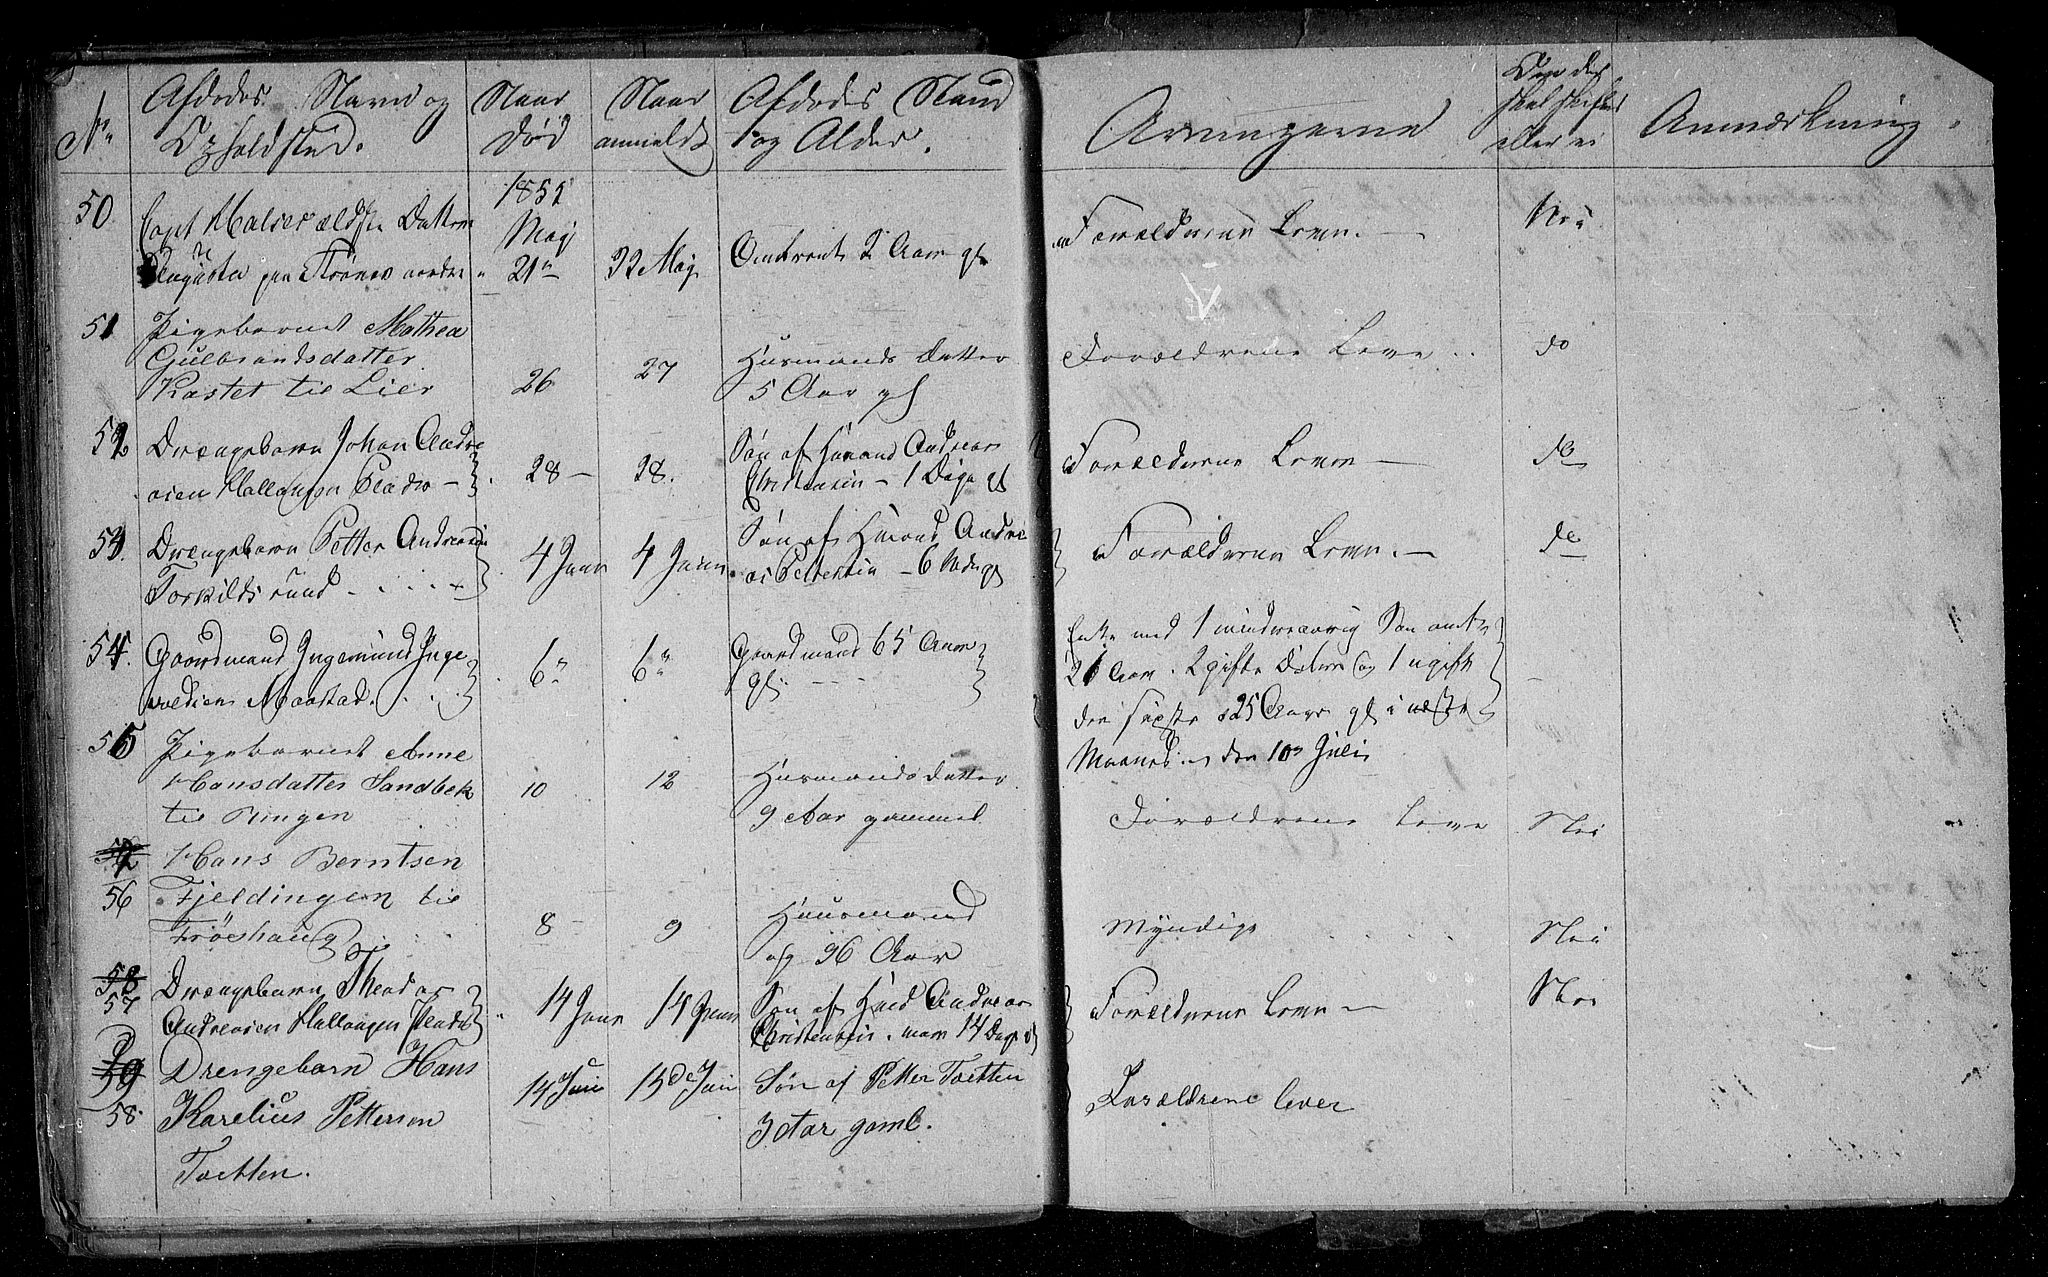 No
Afdødes Navn og
Opholdsted.
Naar
Død
Naar
anmeldt
Afdødes Stand
og Alder.
Arvingerne
Om der
skal skiftes
eller ei
Anmærkning.
50.
Datter
Augusta paa
1851
Maj
21
22 Maj
Omtrent 2 Aar gl
Forældrene Lever.
Nei
51
Pigebarnet Mathea
Gulbrandsdatter
Kastet til Lier
26
27
Husmands Datter
5 Aar gl
Forældrene Leve
do
52
Drængebarn Johan Andre
asen Hallangen
28
28.
Søn af Husmand Andreas
Christensen - 1 Dage gl
Forældrene Lever
do
53.
Drængebarn Petter Andreasen
Torkildsrund
4 Juni
4 Juni
Søn af Husmand Andre
as Pettersen - 6 Uger gl
Forældrene Lever.
do
54.
Gaardmand Ingemund Inge
voldsen Maastad.
6
6
Gaardmand 65 Aar
gl
Enke med 1 mindreaarig Søn
21 Aar. 2 gifte Døtre og 1 ugift
den sidste 25 Aar gl i næste
Maaned den 10 Juli
55
Pigebarnet Anne
Hansdatter Sandbek
til Ringen
10
12
Husmands datter
9 Aar gammel
Forældrene Leve
Nei
56
Hans Berntsen
Fjeldingen til
Frøeshaug
8
9
Huusmand
og 96 Aar
Myndige
Nei
58
57
Drængebarn Theodor
Andreasen Hallangen
14 Juni
14 Juni
Søn af Husmd Andreas
Christensen 14 Dage gl
Forældrene Lever
Nei
59
58.
Drengebarn Hans
Karelius Petterson
Toetten.
14 Juni
15de Juni
Søn af Petter Toetten
3 Aar gaml.
Forældrene lever